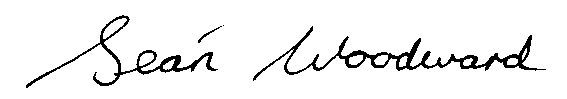 Seán Woodward